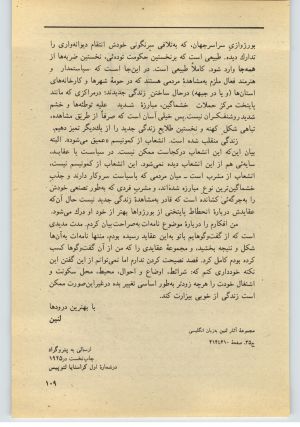 بورژوازی سراسرجهان، که‌به‌تلافی سرنگونی خودش انتقام دیوانه‌واری را
تدارك دیده. طبیعی است که برنخستین حکومت تودئی، نخستین ضربه‌ها از
همه‌جا وارد شود. کاملاً طبیعی است. در این‌جا است که سیاستمدار و
هنرمند فعال ملزم به‌مشاهدهٔ مردمی هستند که در حومهٔ شهرها و کارخانه‌های
استان‌ها (و یا در جبهه) درحال ساختن زندگی جدیدند؛ درمراکزی که مانند
پایتخت مرکز حملات خشماگین، مبارزهٔ شدید علیه توطئه‌ها و خشم
شدید روشنفکران نیست. پس خیلی آسان است که صرفاً از طریق مشاهده،
تباهی شکل کهنه و نخستین طلایع زندگی جدید را از یکدیگر تمیز دهیم.
زندگی منقلب شده است. انشعاب از کمونیسم «عمیق می‌شود». البته
بیان این‌که این انشعاب درکجاست ممکن نیست. در سیاست یا عقاید،
سایه‌ئی هم از این انشعاب دیده نمی‌شود. این انشعاب از کمونیسم نیست،
انشعاب از مشرب است ـ میان مردمی که باسیاست سروکار دارند و جذبِ
خشماگین‌ترین نوع مبارزه شده‌اند، و مشربِ فردی که به‌طور تصنعی خودش
را به‌جرگه‌ئی کشانده است که قادر به‌مشاهدهٔ زندگی جدید نیست حال آن‌که
عقایدش دربارهٔ انحطاط پایتختی از بورژواها بهتر از خود او درك می‌شود.
من افکارم را دربارهٔ موضوع نامه‌ات به‌صراحت بیان کردم. مدت مدیدی
است که از گفت‌وگوهایم باتو به‌این عقاید رسیده بودم، منتها نامه‌ات به‌آن‌ها
شکل و نتیجه بخشید، و مجموعهٔ عقایدی را که من از آن گفت‌وگوها کسب
کرده بودم کامل کرد. قصد نصیحت کردن ندارم اما نمی‌توانم از این گفتن این
نکته خودداری کنم که: شرائط، اوضاع و احوال، محیط، محل سکونت و
اشتغال خودت را هرچه زودتر به‌طور اساسی تغییر بده درغیراین‌صورت ممکن
است زندگی از خوبی بیزارت کند.
با بهترین درودها
لنین
مجموعهٔ آثار لنین به‌زبان انگلیسی
ج۳۵، صفحهٔ ۴۱۰تا۴۱۴
ارسالی به پتروگراد
چاپ‌نخست در ۱۹۲۵
درشمارهٔ اول کراسنایا لتوپیس
۱۰۹